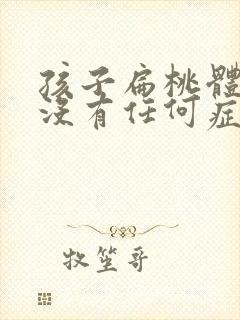 孩子扁桃體
沒有任何症
牧笙哥